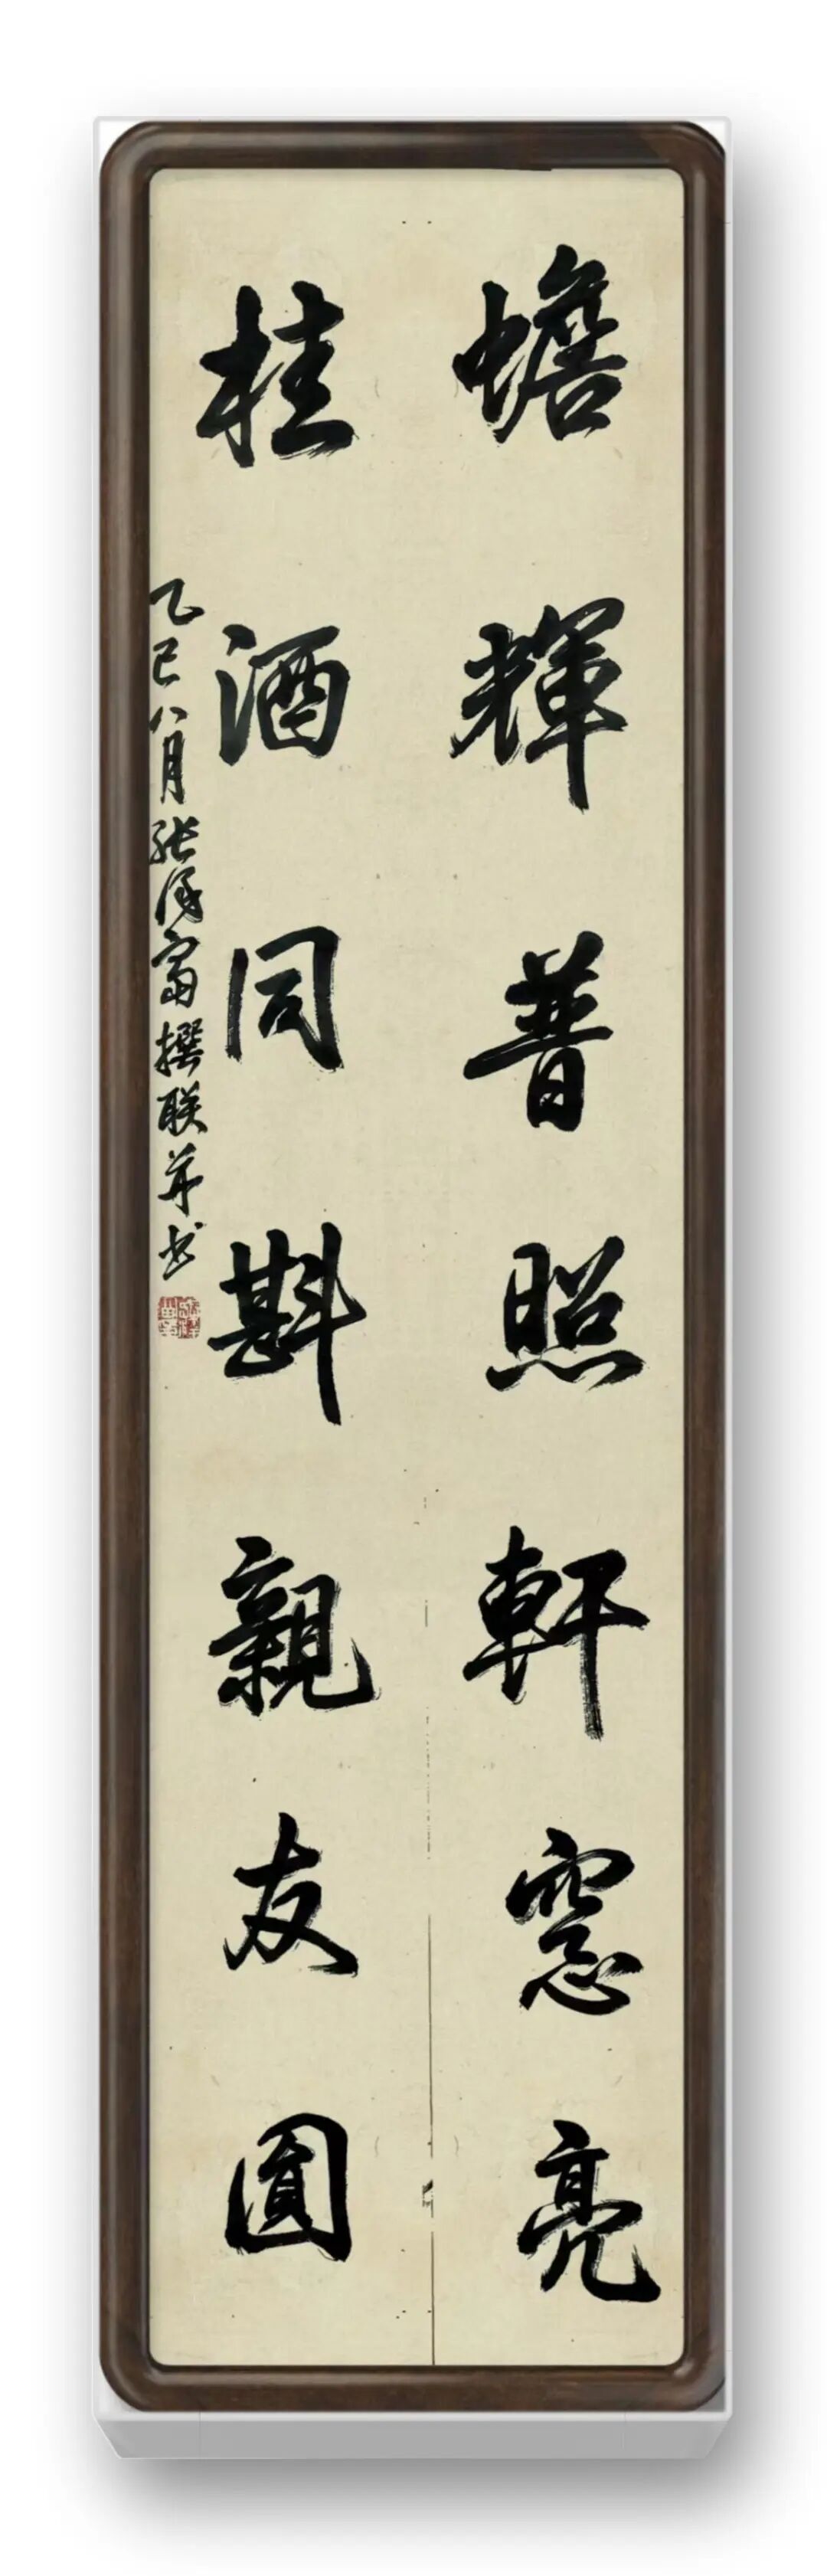 蟾輝普照軒窓亮
桂酒同斟親友圓
乙巳八月张得富撰联并书